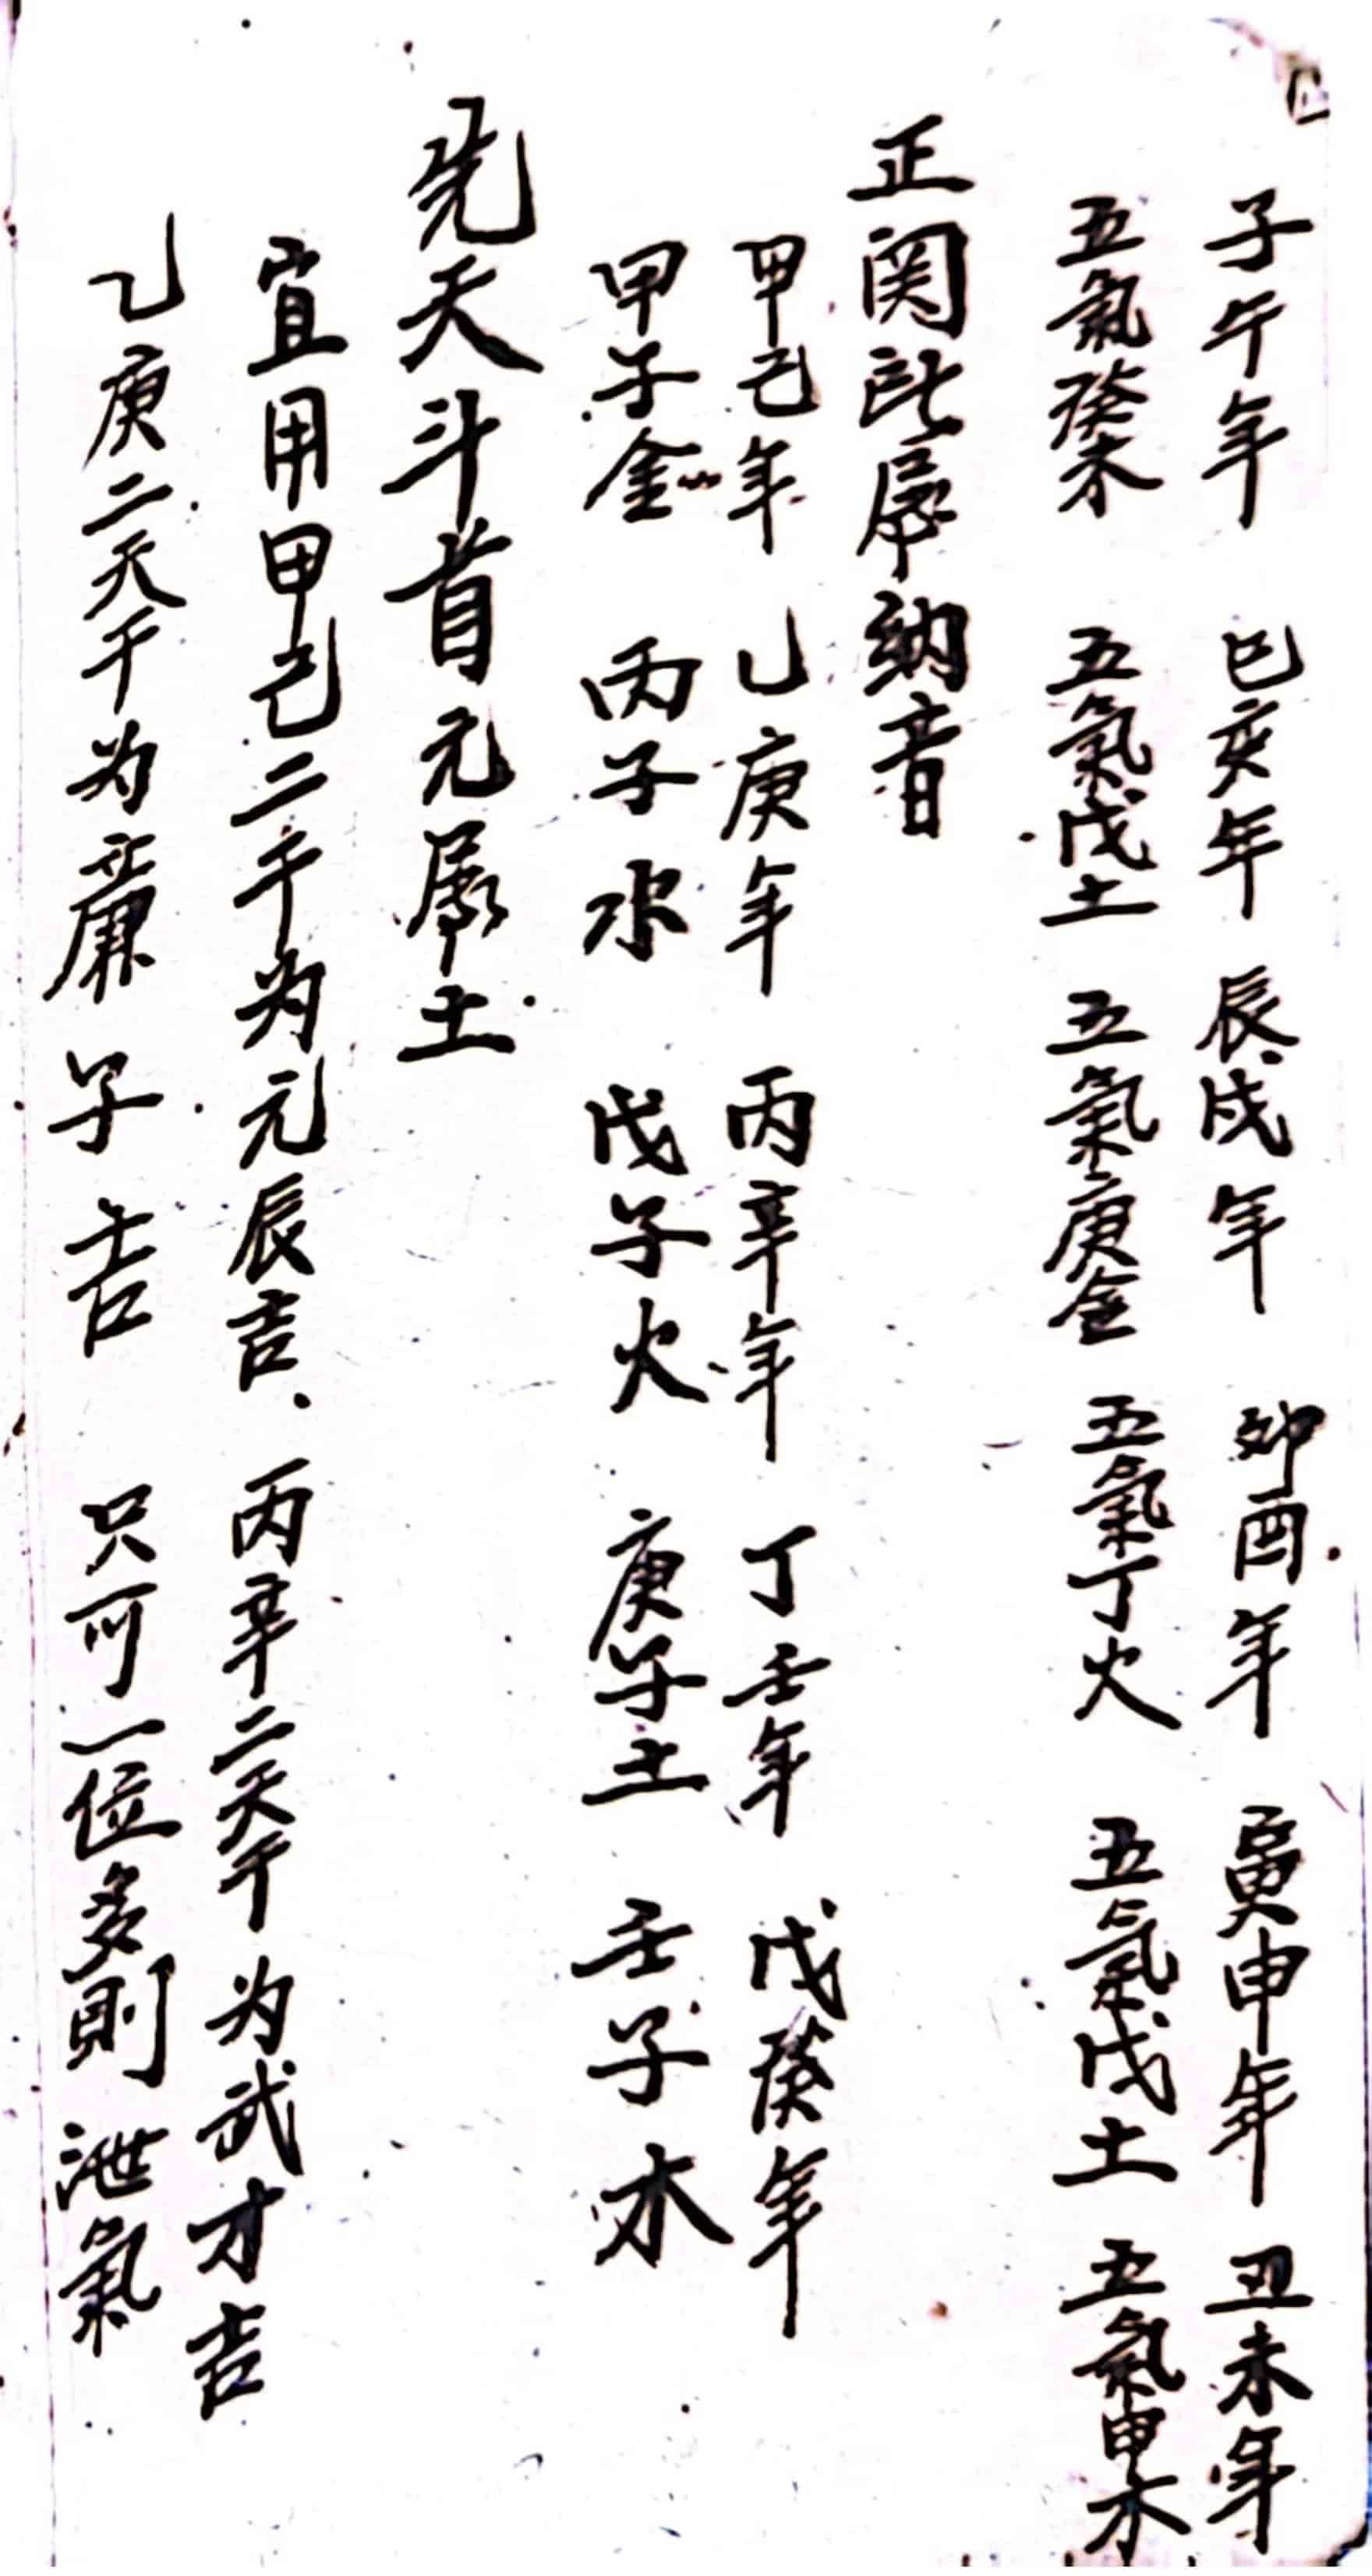 子午年 巳亥年 辰戌年 卯酉年 寅申年 丑未年
五氣癸水 五氣戊土 五氣庚金 五氣丁火 五氣戊土 五氣甲木
正関此屬納音
甲己年 乙庚年 丙辛年 丁壬年 戊癸年
甲子金 丙子水 戊子火 庚子土 壬子木
先天斗首元屬土
宜用甲己二干为元辰吉．丙辛二天干为武才吉
乙庚二天干为廉子吉 只可一位多則泄氣